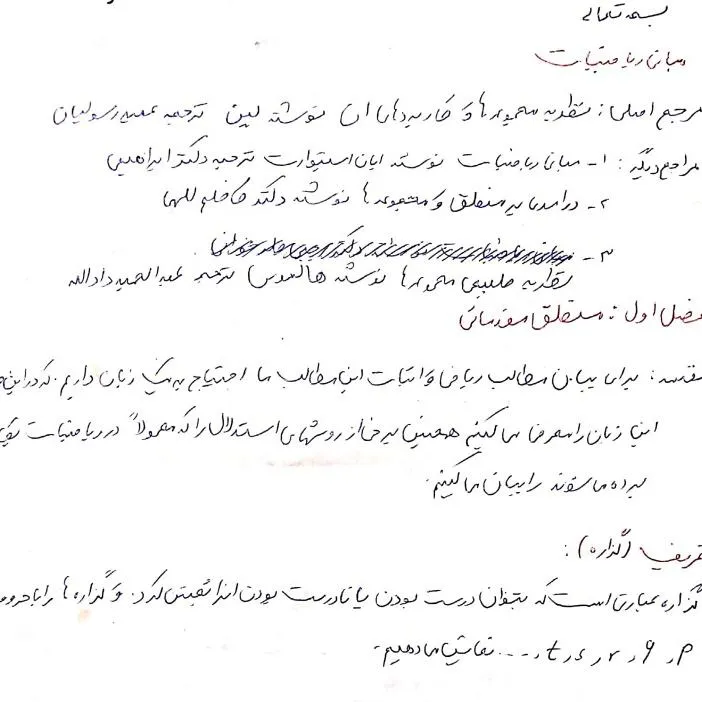 بسمه تعالی
مبانی ریاضیات
مرجع اصلی: نظریه مجموعه‌ها و کاربردهای آن نوشته لین ترجمه عمید رسولیان
مراجع دیگر: ۱- مبانی ریاضیات نوشته ایان استیوارت ترجمه دکتر ابراهیمی
۲- درآمدی بر منطق و مجموعه‌ها نوشته دکتر کاظم للهی
۳-
نظریه طبیعی مجموعه‌ها نوشته هالموس ترجمه عبدالحمید دادالله
فصل اول: منطق مقدماتی
مقدمه: برای بیان مطالب ریاضی و اثبات این مطالب ما احتیاج به یک زبان داریم. که در این
این زبان را معرفی می‌کنیم همچنین برخی از روشهای استدلال را که معمولاً در ریاضیات
برده می‌شوند را بیان می‌کنیم.
تعریف (گزاره):
گزاره، عبارتی است که بتوان درست بودن یا نادرست بودن آنرا تعیین کرد. و گزاره‌ها را با حروف
p, q, r, s, t, ... نمایش می‌دهیم.